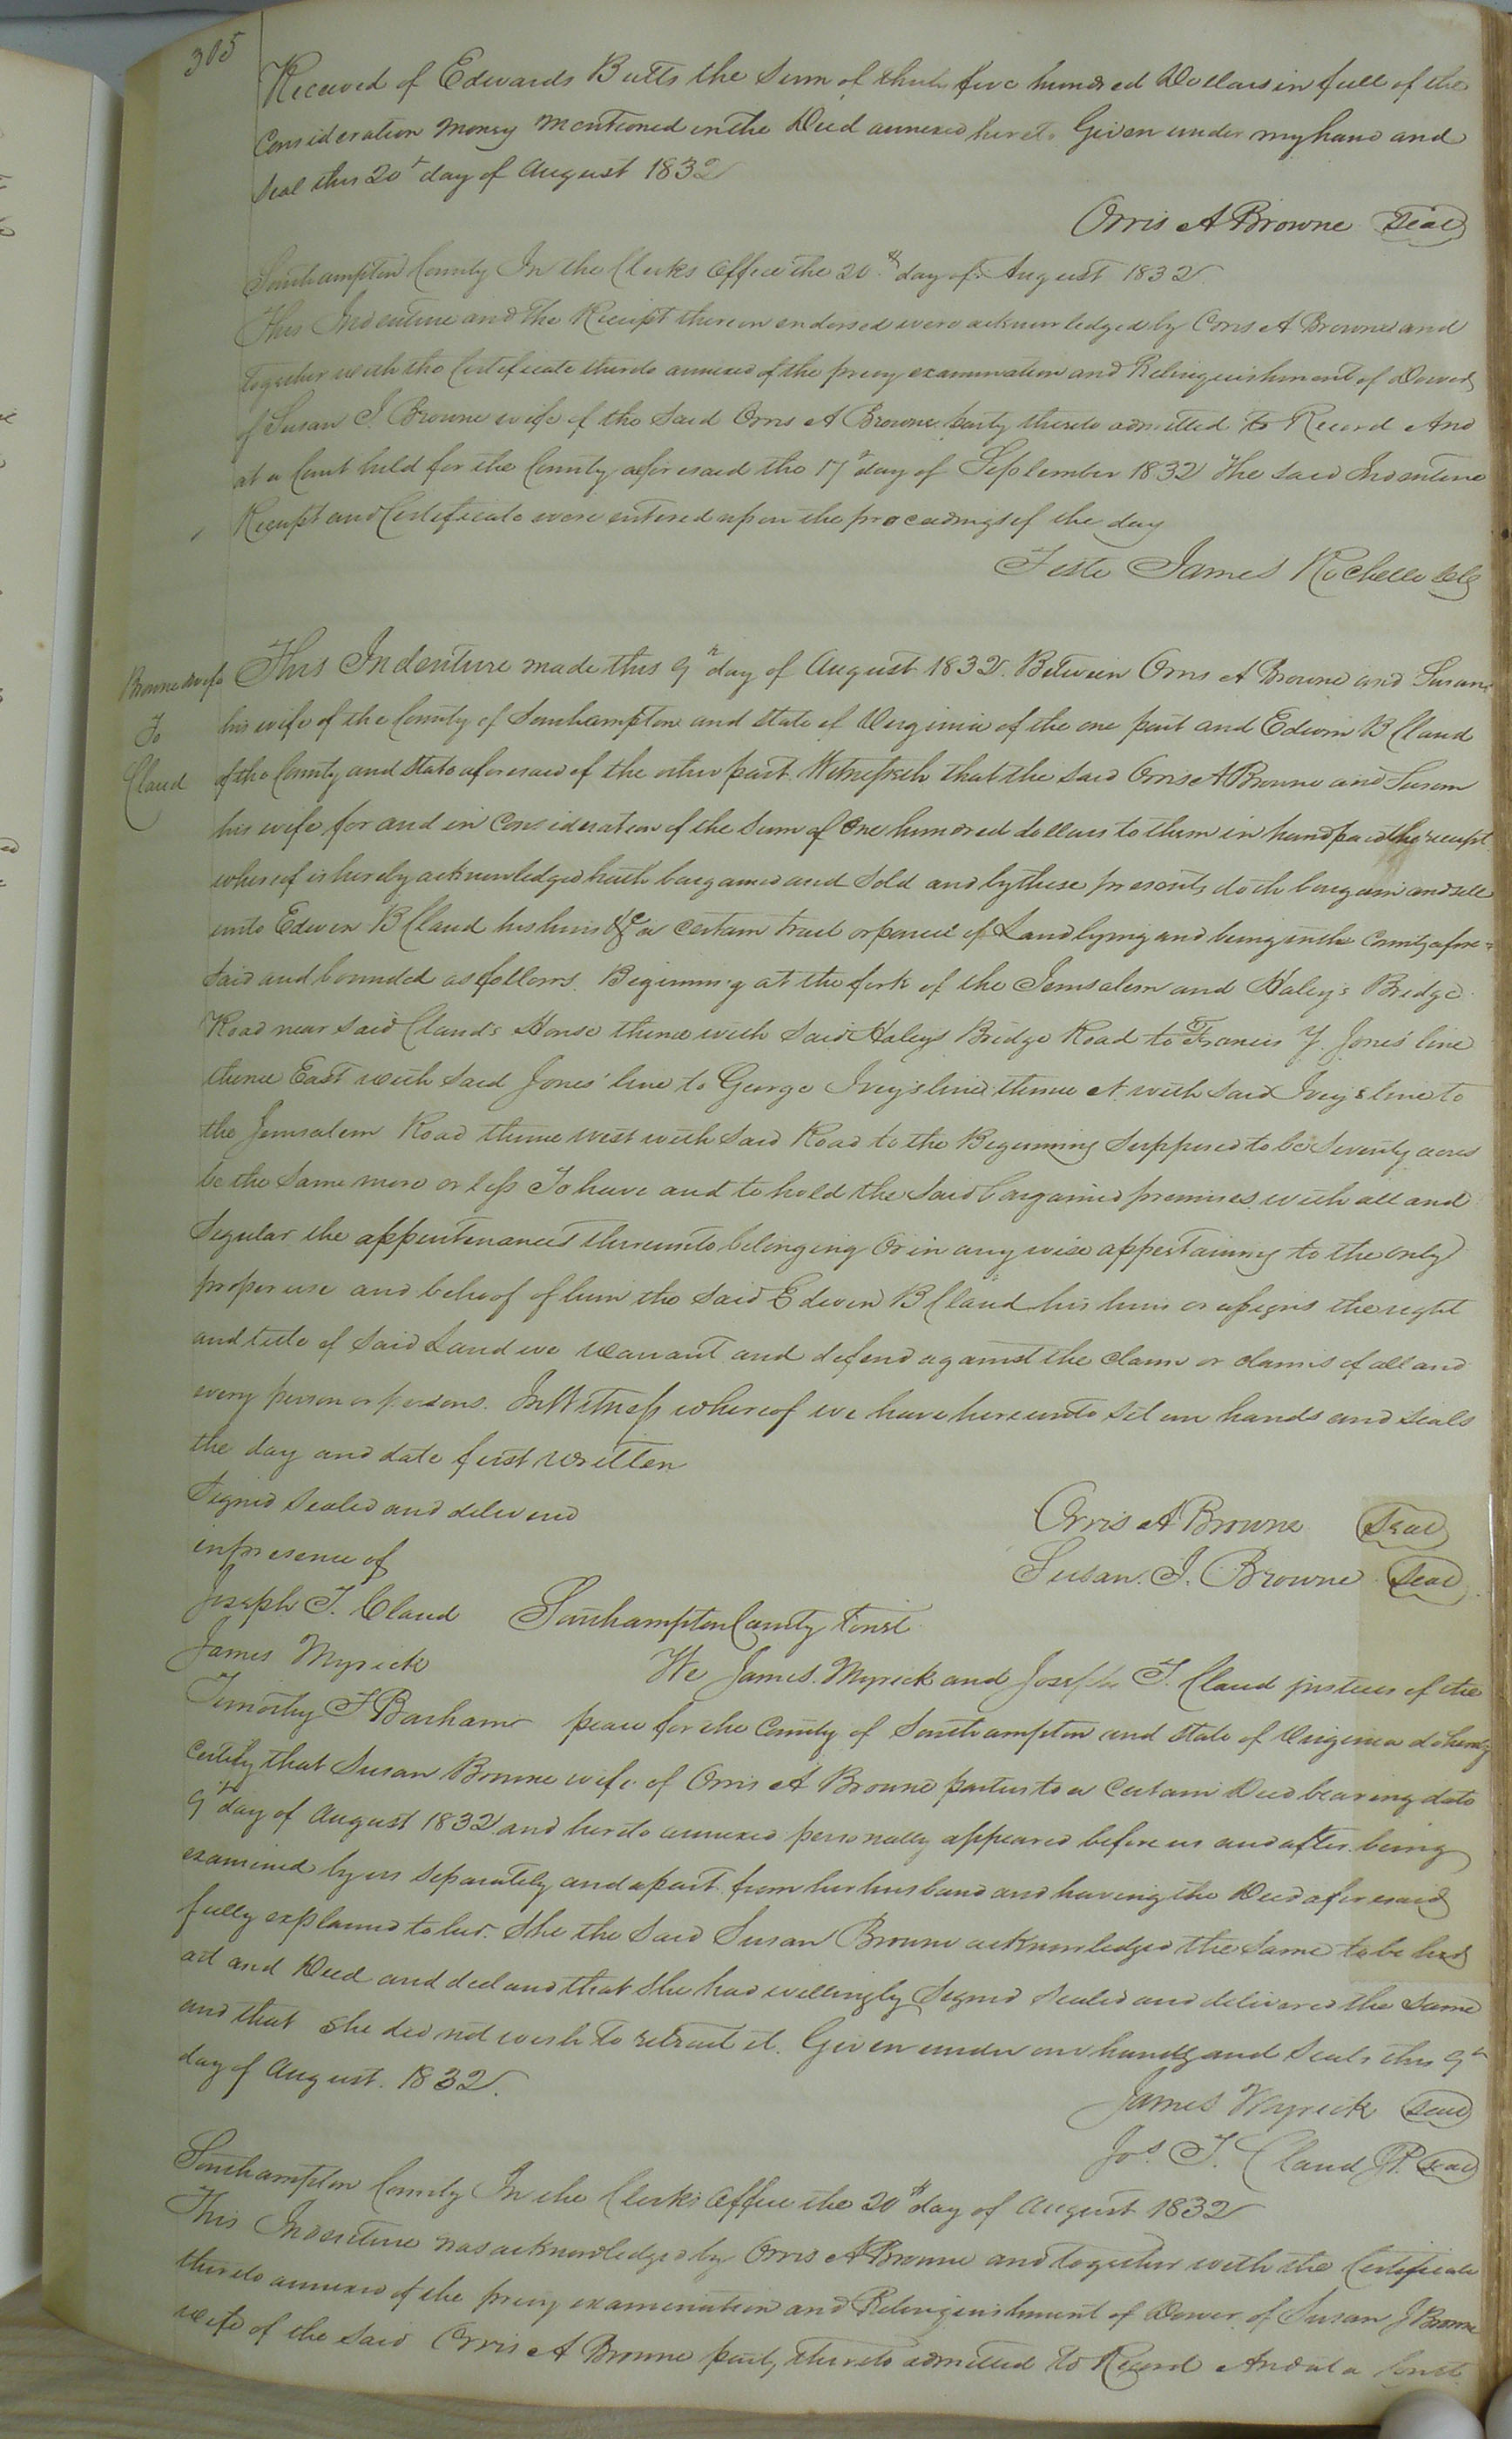 305
Received of Edwards Butts the Sum of thirty five hundred Dollars in full of the
Consideration Money Mentioned in the Deed annexed hereto Given under my hand and
Seal this 20th day of August 1832
Orris A Browne Seal
Southampton County In the Clerks Office the 20th day of August 1832
This Indenture and the Receipt thereon endorsed were acknowledged by Orris A Browne and
together with the Certificate thereto annexed of the privy examination and Relinquishment of Dower
of Susan J. Browne wife of the Said Orris A Browne party thereto admitted to Record And
at a Court held for the County aforesaid the 17th day of September 1832 the said Indenture
Receipt and Certificate were entered upon the proceedings of the day
Teste James Rochelle Clk
Browne & wife
To
Claud
This Indenture made this 9th day of August 1832. Between Orris A Browne and Susan
his wife of the County of Southampton and State of Virginia of the one part and Edwin B Claud
of the County and State aforesaid of the other part. Witnesseth that the said Orris A Browne and Susan
his wife for and in Consideration of the Sum of One hundred dollars to them in hand paid the receipt
whereof is hereby acknowledged hath bargained and Sold and by these presents doth bargain and sell
unto Edwin B Claud his heirs &c a Certain tract or parcel of Land lying and being in the County afore=
said and bounded as follows. Beginning at the fork of the Jerusalem and Haley's Bridge
Road near said Claud's House thence with Said Haleys Bridge Road to Francis Y. Jones' line
thence East with Said Jones' line to George Ivey's line thence N with said Ivey's line to
the Jerusalem Road thence west with Said Road to the Beginning Supposed to be Seventy acres
be the Same more or less To have and to hold the Said bargained premises with all and
Segular the appurtenances thereunto belonging Or in any wise appertaining to the only
proper use and behoof of him the Said Edwin B Claud his heirs or assigns the right
and title of Said Land we warrant and defend against the claim or claims of all and
every person or persons. In Witness whereof we have hereunto Set our hands and seals
the day and date first written
Signed Sealed and delivered
in presence of
Orris A Browne Seal
Susan. J. Browne Seal
Joseph T. Claud
James Myrick
Timothy T Barham
Southampton County towit
We James Myrick and Joseph T. Claud justices of the
peace for the County of Southampton and State of Virginia do hereby
Certify that Susan Browne wife of Orris A Browne parties to a Certain Deed bearing date
9th day of August 1832 and hereto annexed personally appeared before us and after being
examined by us Separately and apart from her husband and having the Deed aforesaid
fully explained to her. She the Said Susan Browne acknowledged the Same to be her
act and Deed and declared that She had willingly Signed Sealed and delivered the Same
and that she did not wish to retract it. Given under our hands and Seals this 9th
day of August. 1832.
James Myrick Seal
Jos. T. Claud JP. Seal
Southampton County In the Clerk's Office the 20th day of August 1832
This Indenture was acknowledged by Orris A Browne and together with the Certificate
thereto annexed of the privy examination and Relinquishment of Dower of Susan J Browne
wife of the Said Orris A Browne party thereto admitted to Record And at a Court